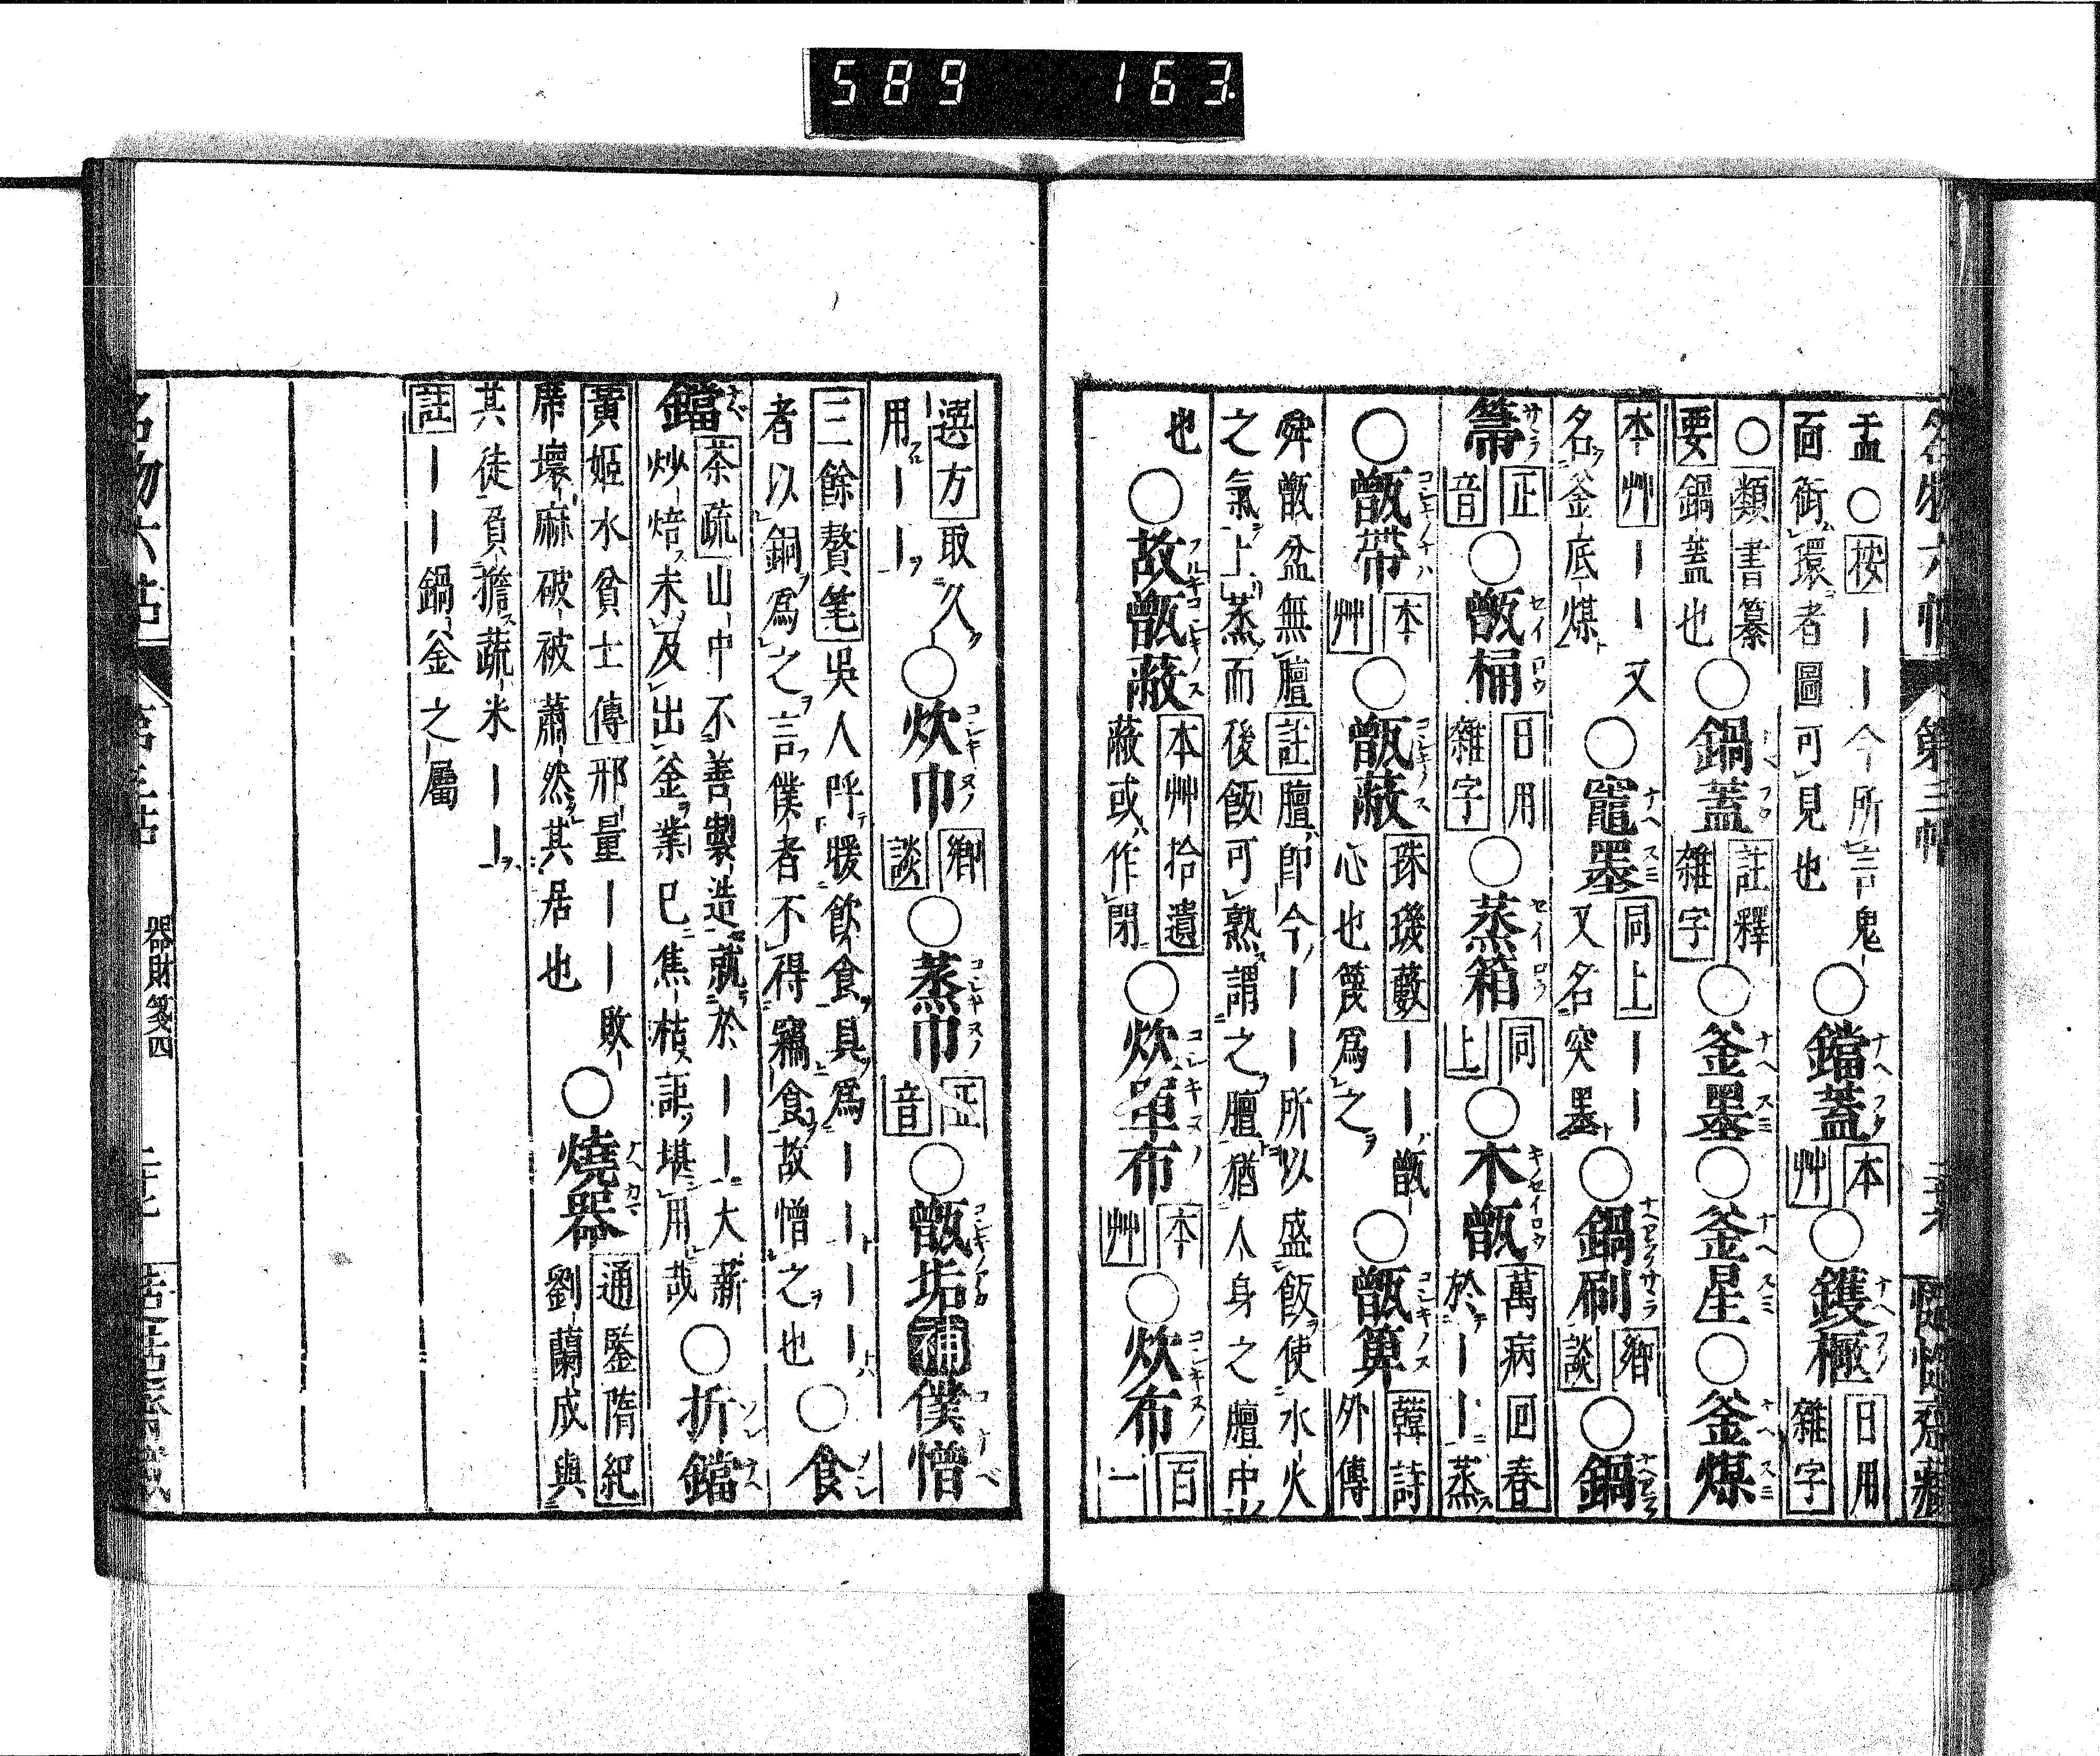 589 163
名物六帖 第三帖
盂〇按――今所言鬼
面銜環者圖可見也〇鐺蓋本艸〇鑊櫃日用雜字
〇類書纂要鍋蓋也〇鍋蓋註釋雜字〇釜墨〇釜星〇釜煤
本艸――又名釜底煤〇竈墨同上――又名突墨〇鍋刷鄉談〇鍋
箒正音〇甑桶日用雜字〇蒸箱同上〇木甑萬病回春於――蒸
〇甑帶本艸〇甑蔽珠璣藪――甑心也篾爲之〇甑箅韓詩外傳
舜甑盆無膻註膻即今――所以盛飯使水火
之氣上蒸而後飯可熟謂之膻猶人身之膻中
也〇故甑蔽本艸拾遺蔽或作閉〇炊單布本艸〇炊布百一
選方取久用――〇炊巾鄉談〇蒸巾正音〇甑垢補僕憎
三餘贅笔吳人呼暖飲食具爲――――
者以銅爲之言僕者不得竊食故憎之也〇食
鐺茶疏山中不善製造就於――大薪
炒焙未及出釜業已焦枯詎堪用哉〇折鐺
黄姬水貧士傳邢量――敗
席壞麻破被蕭然其居也〇燒器通鑒隋紀劉蘭成與
其徒負擔蔬米――
註――鍋釜之屬
名物六帖 器財箋四